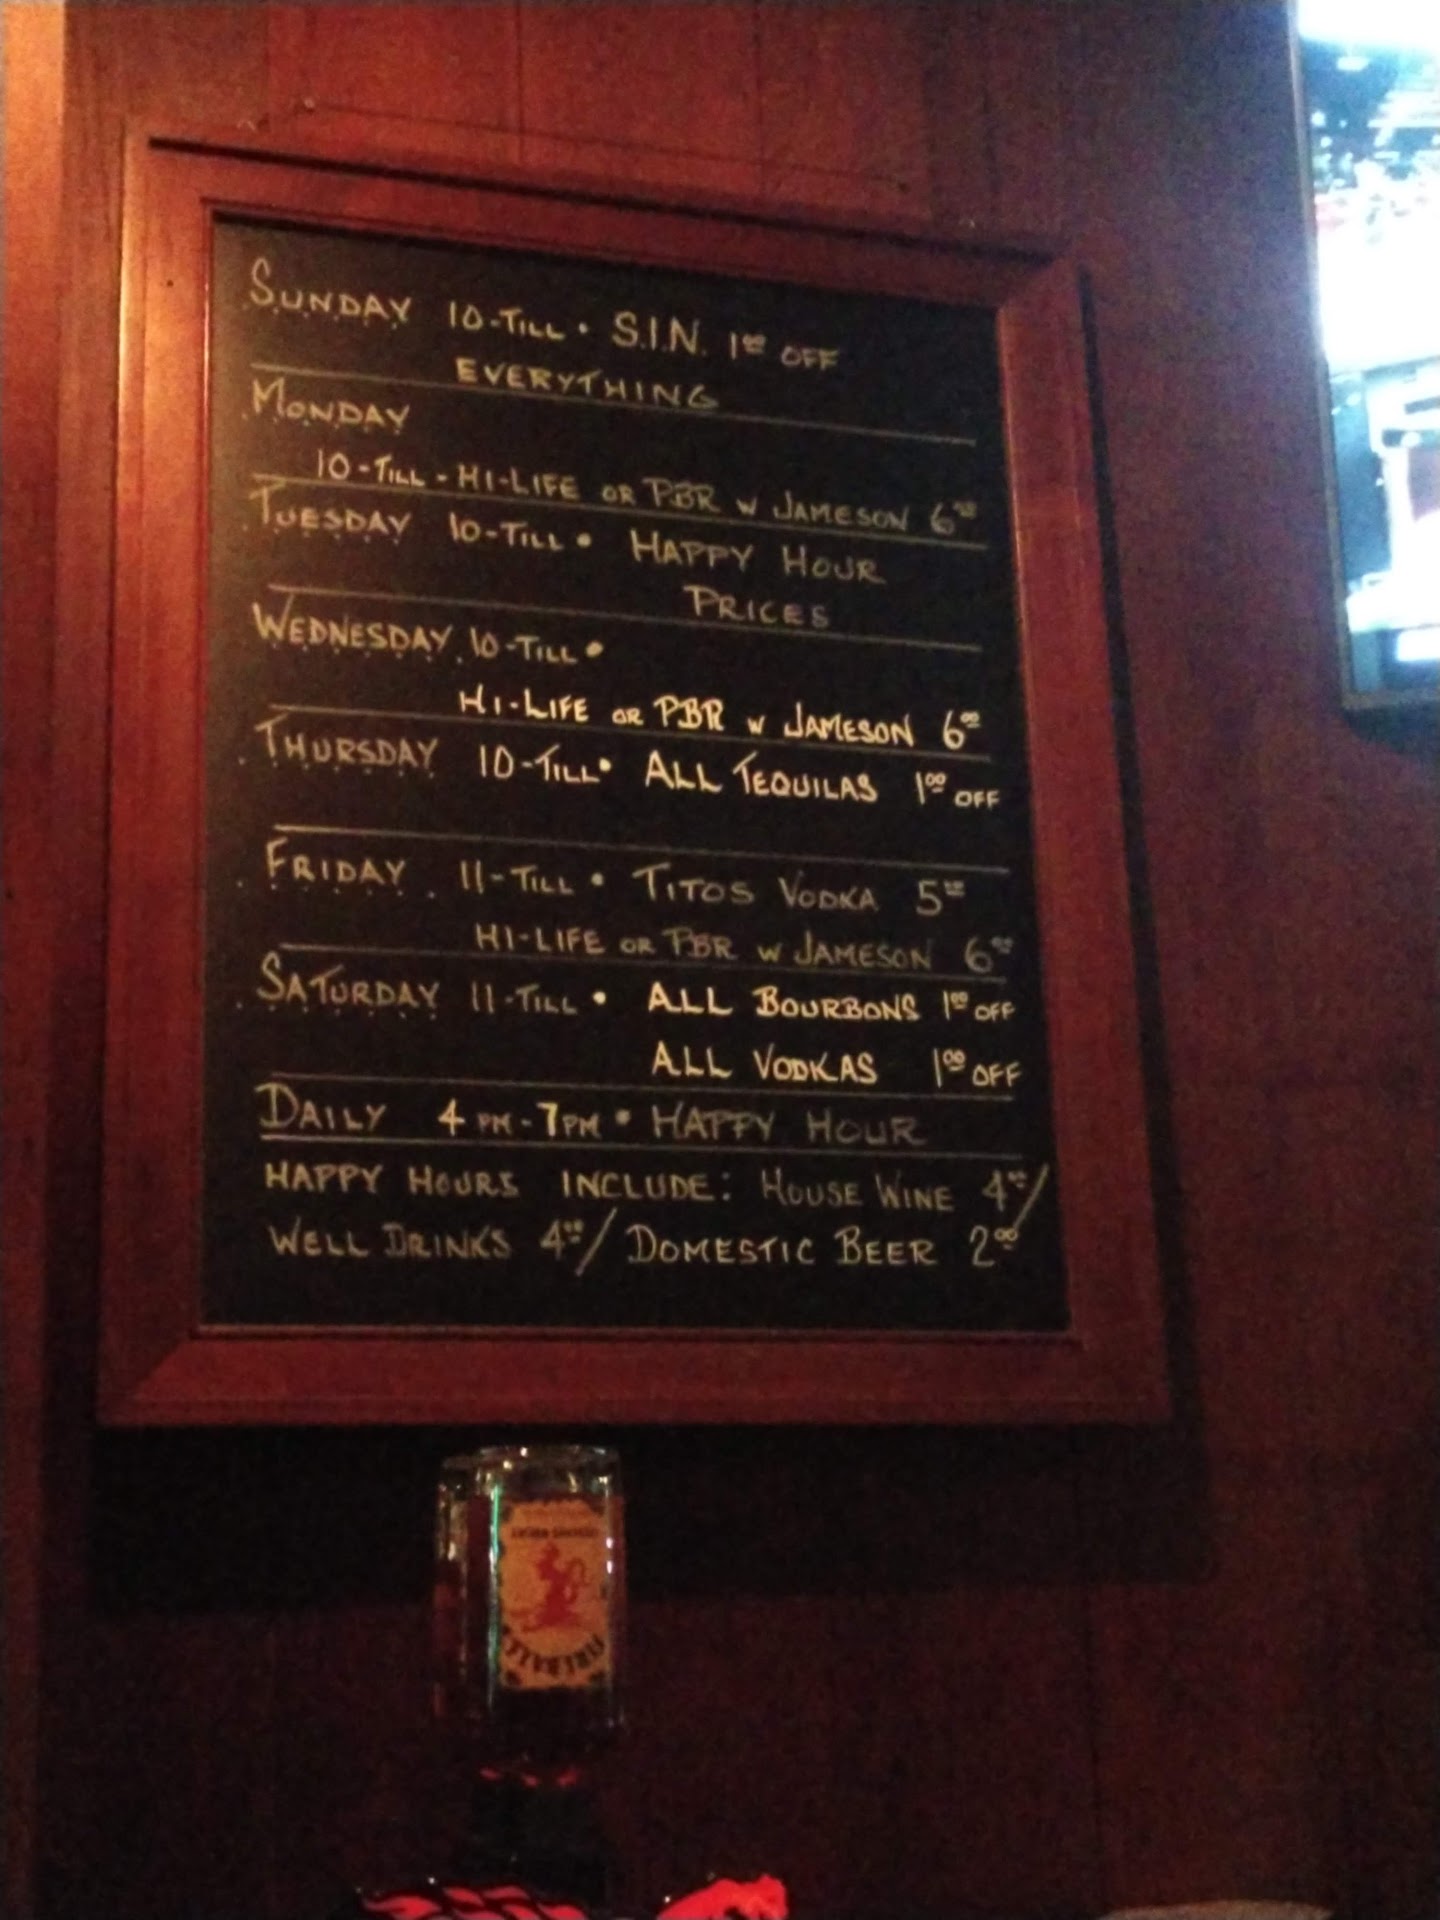 SUNDAY 10-TILL • S.I.N. 1⁰⁰ OFF
EVERYTHING
MONDAY
10-TILL - HI-LIFE OR PBR W JAMESON 6⁰⁰
TUESDAY 10-TILL • HAPPY HOUR
PRICES
WEDNESDAY 10-TILL •
HI-LIFE OR PBR W JAMESON 6⁰⁰
THURSDAY 10-TILL • ALL TEQUILAS 1⁰⁰ OFF
FRIDAY 11-TILL • TITOS VODKA 5⁰⁰
HI-LIFE OR PBR W JAMESON 6⁰⁰
SATURDAY 11-TILL • ALL BOURBONS 1⁰⁰ OFF
ALL VODKAS 1⁰⁰ OFF
DAILY 4 PM - 7 PM • HAPPY HOUR
HAPPY HOURS INCLUDE: HOUSE WINE 4⁰⁰/
WELL DRINKS 4⁰⁰/ DOMESTIC BEER 2⁰⁰
FIREBALL